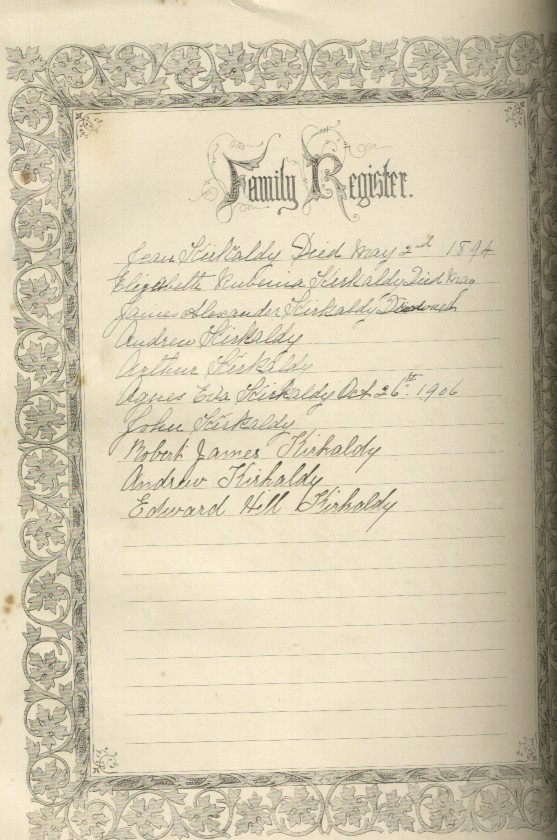 Family Register.
Jean Kirkaldy Died May 2nd 1894
Elizabeth Rubina Kirkaldy Died May
James Alexander Kirkaldy
Andrew Kirkaldy
Arthur Kirkaldy
Agnes Eva Kirkaldy Oct 26th 1906
John Kirkaldy
Robert James Kirkaldy
Andrew Kirkaldy
Edward Hill Kirkaldy